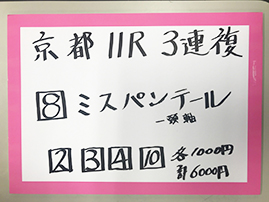 京都11R 3連複
8 ミスパンテール
一頭軸
2 3 4 10 各1000円
計6000円